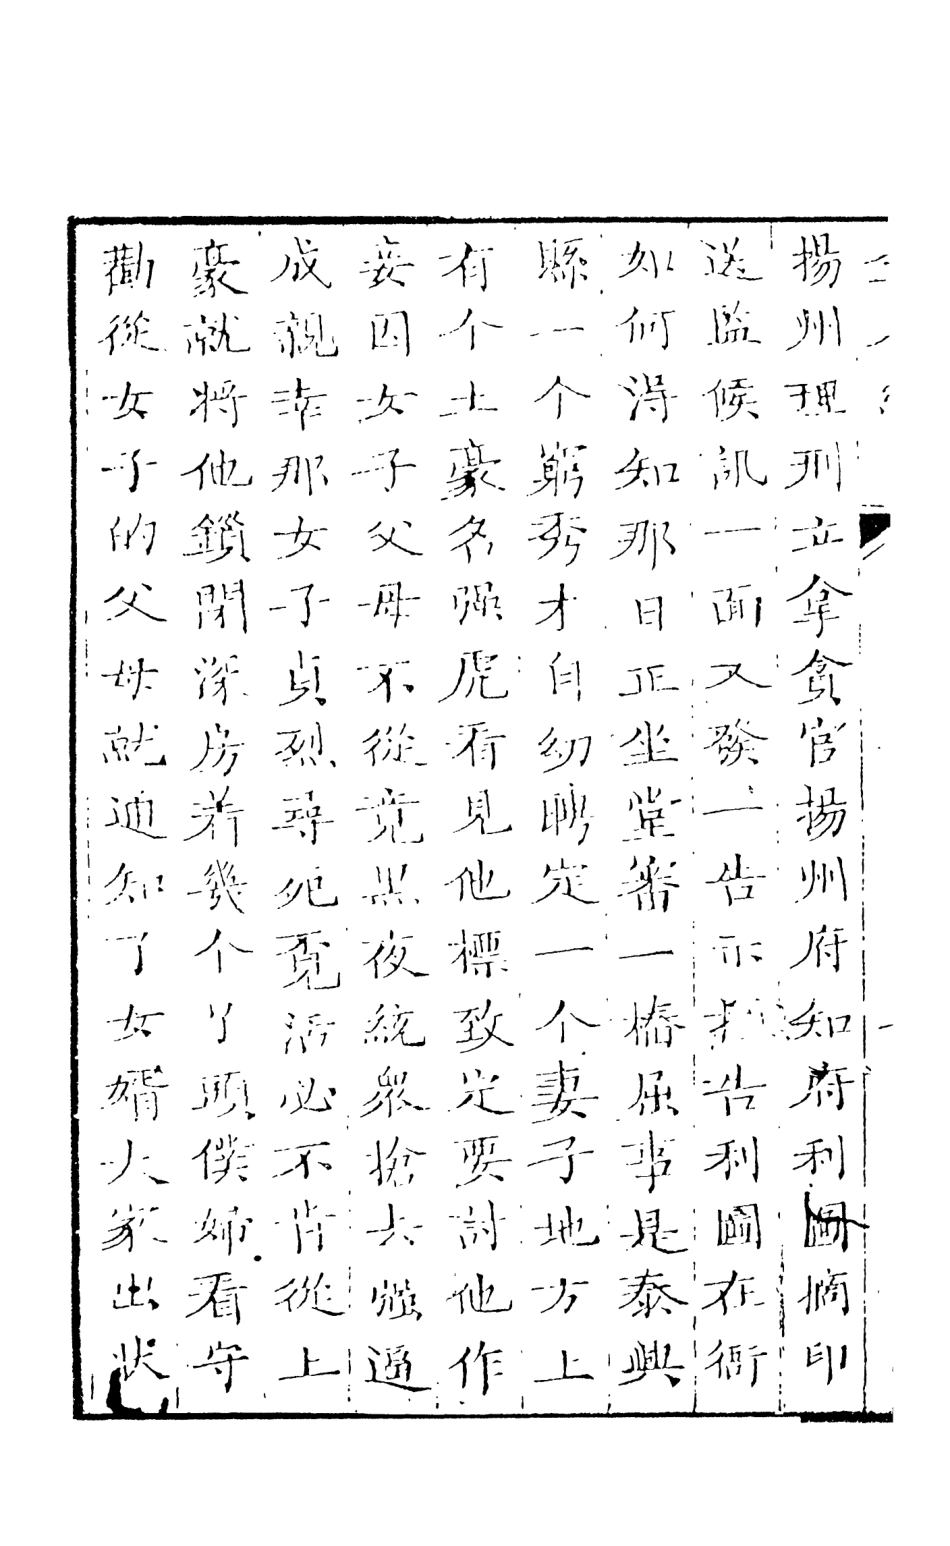 揚州理刑立拿貪官揚州府知府利圖摘印
送監候訊一面又發一告示招告利圖在衙
如何得知那日正坐堂審一樁屈事是泰興
縣一个窮秀才自幼聘定一个妻子地方上
有个土豪名强虎看見他標致定要討他作
妾因女子父母不從竟黑夜統衆搶去強逼
成親幸那女子貞烈尋死覓活必不肯從上
豪就將他鎖閉深房着幾个丫頭僕婦看守
勸從女子的父母就通知了女婿大家出狀